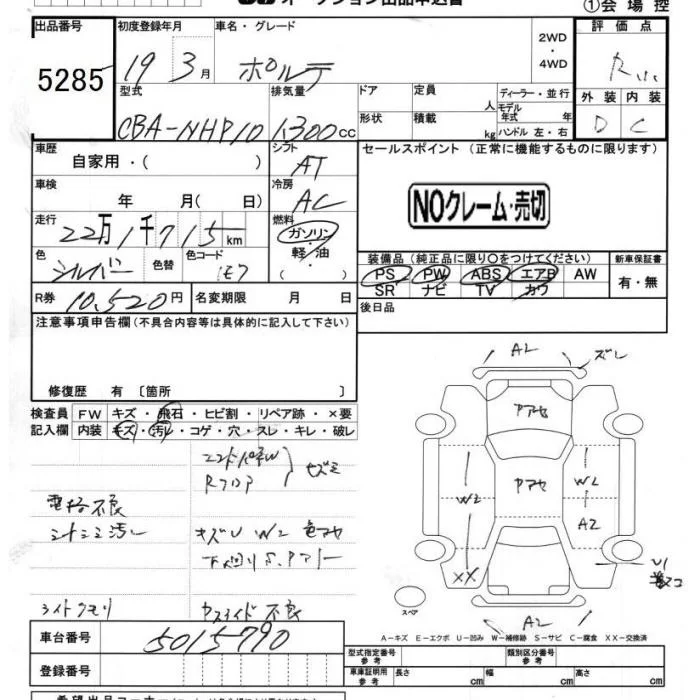 ①会場控
出品番号
5285
初度登録年月
19 3月
車名・グレード
ポルテ
2WD
・
4WD
評価点
R
外装 内装
D C
型式
CBA-NHP10
排気量
1300 cc
ドア
定員
人
形状
積載
kg
ディーラー・並行
モデル年式 年
ハンドル 左・右
車歴
自家用・( )
シフト
AT
セールスポイント (正常に機能するものに限ります)
NOクレーム・売切
車検
年 月( 日)
冷房
AC
走行
22万1千715km
燃料
ガソリン・
軽・油
( )
色
シルバー
色替
色コード
1E7
装備品(純正品に限り○をつけてください)
PS PW ABS エアB AW
SR ナビ TV カワ
新車保証書
有・無
R券 10,520円
名変期限 月 日
後日品
注意事項申告欄(不具合内容等は具体的に記入して下さい)
修復歴 有〔箇所 〕
検査員
記入欄
FW キズ・飛石・ヒビ割・リペア跡・×要
内装 キズ・汚レ・コゲ・穴・スレ・キレ・破レ
R フロア
電格不良
シートシミ汚レ
キズU W2 色アセ
ライトクモリ
不良
A2
ズレ
アアセ
アアセ
W2
W2
A2
XX
U1
A2
スペア
A-キズ E-エクボ U-凹み W-補修跡 S-サビ C-腐食 XX-交換済
車台番号
5015790
登録番号
型式指定番号
参考
類別区分番号
参考
車庫証明用
参考
長さ cm
幅 cm
高さ cm